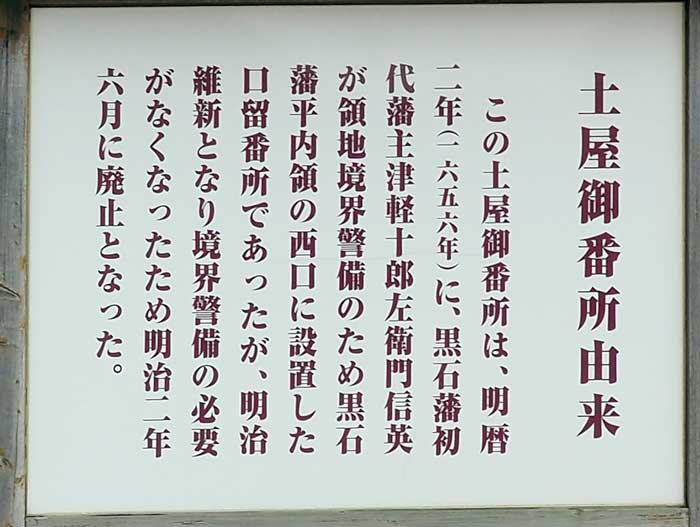 土屋御番所由来
この土屋御番所は、明暦
二年(一六五六年)に、黒石藩初
代藩主津軽十郎左衛門信英
が領地境界警備のため黒石
藩平内領の西口に設置した
口留番所であったが、明治
維新となり境界警備の必要
がなくなったため明治二年
六月に廃止となった。